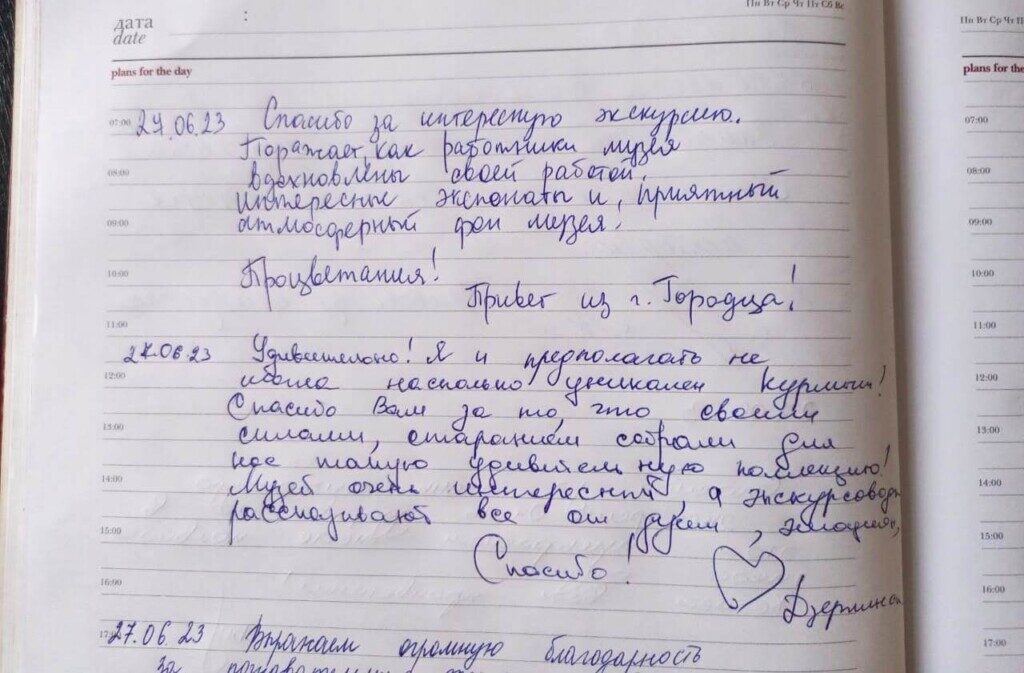 дата :
date
Пн Вт Ср Чт Пт Сб Вс
plans for the day
07:00 27.06.23 Спасибо за интересную экскурсию.
Поражает, как работники музея
08:00 вдохновлены своей работой.
интересные экспонаты и, приятный
09:00 атмосферный фон музея.
10:00 Процветания!
Привет из г. Городца!
11:00
27.06 23 Удивительно! Я и предполагать не
12:00 могла насколько уникален Курмыш!
Спасибо Вам за то, что своими
13:00 силами, старанием собрали для
нас такую удивительную коллекцию!
14:00 Музей очень интересный, а экскурсоводы
рассказывают все от души,
15:00
Спасибо!
16:00
17:00 27.06 23 Выражаем огромную благодарность
за
Пн Вт Ср Чт П
plans for the
07:00
08:00
09:00
10:00
11:00
12:00
13:00
14:00
15:00
16:00
17:00